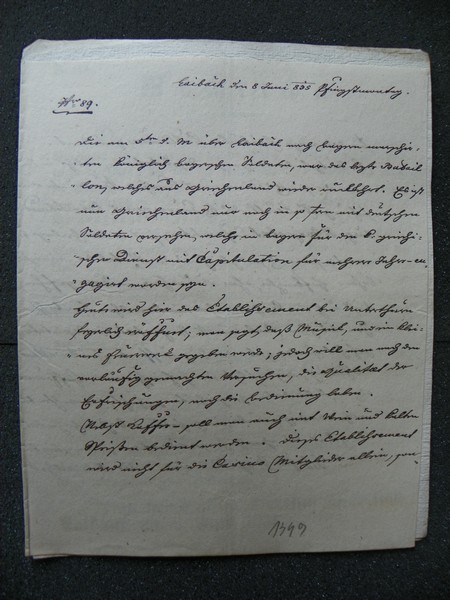 Laibach den 8 Juni 835 Pfingstmontag.
No 89.
Die am 5ten d. M über Laibach nach Bayern marschir-
ten königlich bayrischen Soldaten, war das letzte Batail-
lon, welches aus Griechenland wieder rückkehrt. Es ist
nun Griechenland nur noch in so fern mit deutschen
Soldaten versehen, welche in Bayern für den k. griechi-
schen Dienst mit Capitulation für mehrere Jahre en-
gagirt worden
Heute wird hier das Etablissement bei Unterthurn
feyerlich eröffnet; man sagt, daß Musik, und ein klei-
nes Feuerwerk gegeben werde; jedoch will man nach den
vorläufig gemachten Versuchen, die Qualität der
Erfrischungen, noch die Bedienung loben.
Nebst Kaffee soll man auch mit Wein und kalten
Speisen bedient werden. Dieses Etablissement
wird nicht für die Casino Mitglieder allein, son-
1399